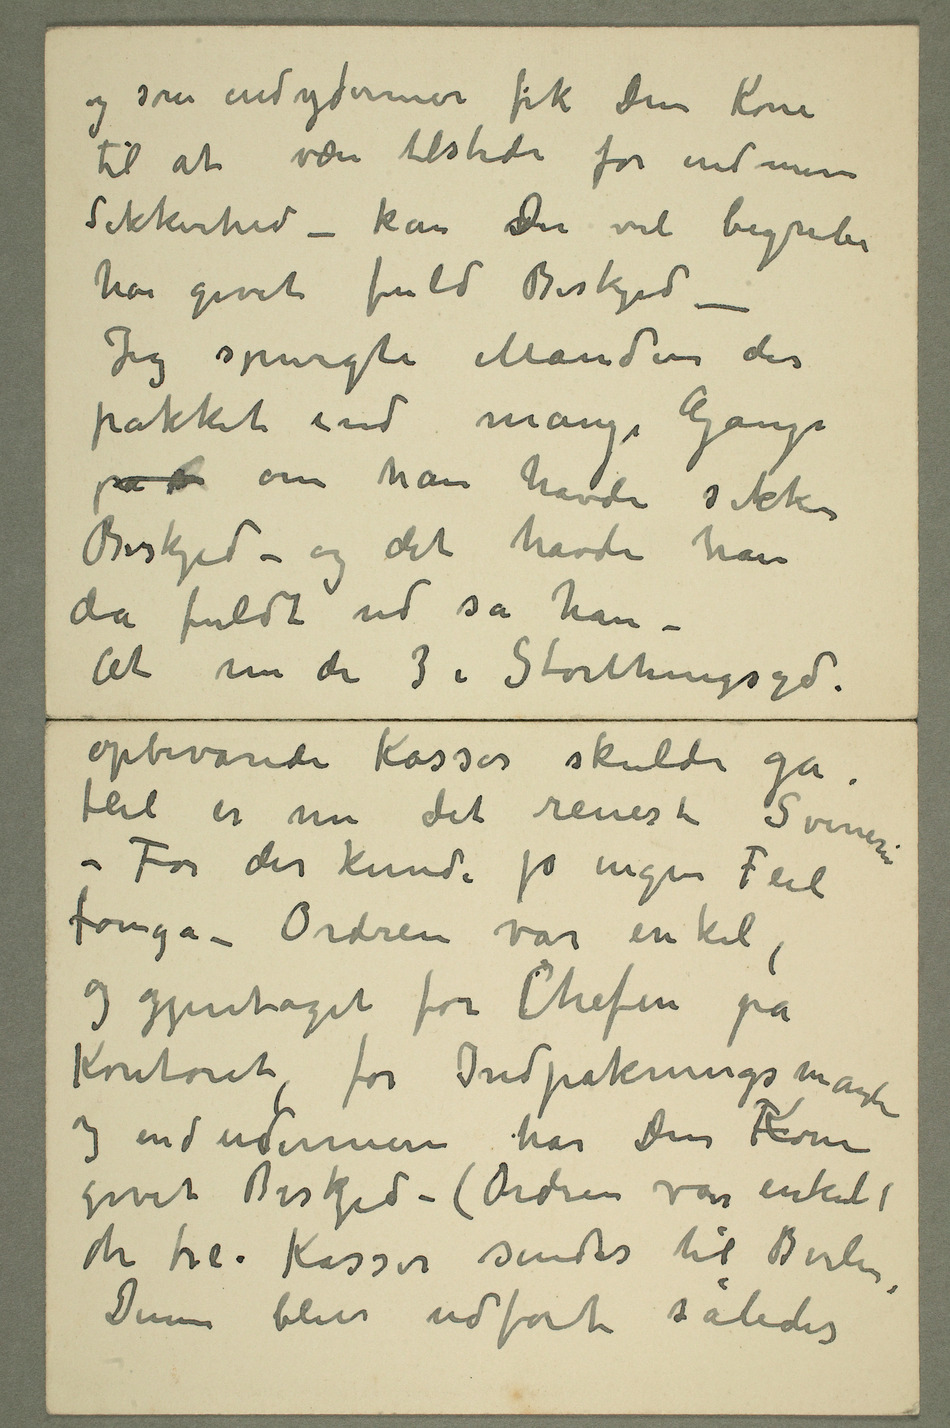 og som endydermer fik Din Kone
til at være tilstede for end mere
Sikkerhed – kan Du vel begribe
har givet fuld Beskjed –
Jeg spurgte Manden der
pakket ind mange Gange
på om han havde sikker
Beskjed – og det havde han
da fuldt ud sa han –
At nu de 3 i Storthingsgd.
opbevarede Kasser skulde gå
feil er nu det reneste Svineri
– For der kunde jo ingen Feil
foregå – Ordren var enkel,
og gjentaget for Chefen på
Kontoret, for Indpakningsmanden
og endudermere har Din Kone
givet Beskjed – (Ordren var enkel)
de tre Kasser sendes til Berlin.
Denne blev udført således